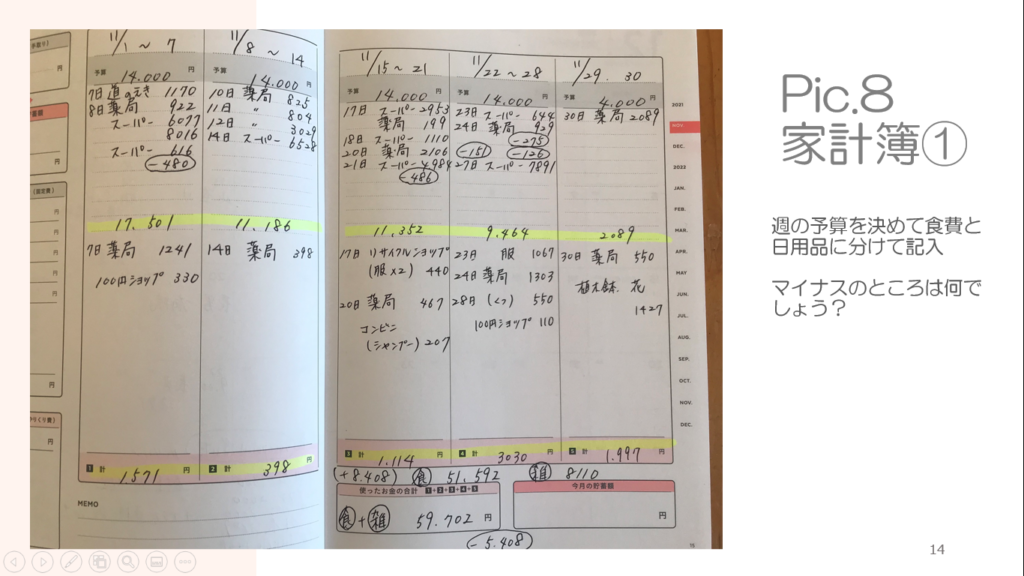 Pic.8
家計簿①
週の予算を決めて食費と
日用品に分けて記入
マイナスのところは何で
しょう？
11/1 ~ 7
予算 14.000 円
7日 道のえき 1170
8日 薬局 922
スーパー 6077
8016
スーパー 616
-480
17.501
7日 薬局 1241
100円ショップ 330
1 計 1.571 円
11/8 ~ 14
予算 14.000 円
10日 薬局 825
11日 〃 804
12日 〃 3029
14日 スーパー 6528
11.186
14日 薬局 398
2 計 398 円
11/15 ~ 21
予算 14.000 円
17日 スーパー 2953
薬局 199
18日 スーパー 1110
20日 薬局 2106
21日 スーパー 4984
-486
11.352
17日 リサイクルショップ
(服×2) 440
20日 薬局 467
コンビニ
(シャンプー) 207
3 計 1.114 円
11/22 ~ 28
予算 14.000 円
23日 スーパー 644
24日 薬局 929
-275
-151 -126
27日 スーパー 7891
9.464
23日 服 1067
24日 薬局 1303
28日 (くつ) 550
100円ショップ 110
4 計 3030 円
11/29. 30
予算 4.000 円
30日 薬局 2089
2089
30日 薬局 550
植木鉢. 花
1427
5 計 1.997 円
(+8.408) 食 51.592 雑 8110
使ったお金の合計 1+2+3+4+5
食 + 雑 59.702 円
-5.408
今月の貯蓄額
円
MEMO
2021
NOV.
DEC.
2022
JAN.
FEB.
MAR.
APR.
MAY
JUN.
JUL.
AUG.
SEP.
OCT.
NOV.
DEC.
14